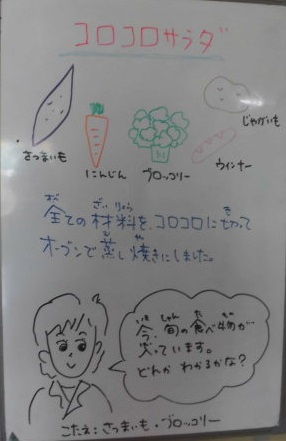 コロコロサラダ
さつまいも
にんじん
ブロッコリー
ウインナー
じゃがいも
全ての材料を、コロコロに切って
すべ ざいりょう き
オーブンで蒸し焼きにしました。
む や
今、旬の食べ物が
いま しゅん た もの
入っています。
はい
どれか わかるかな?
こたえ:さつまいも・ブロッコリー